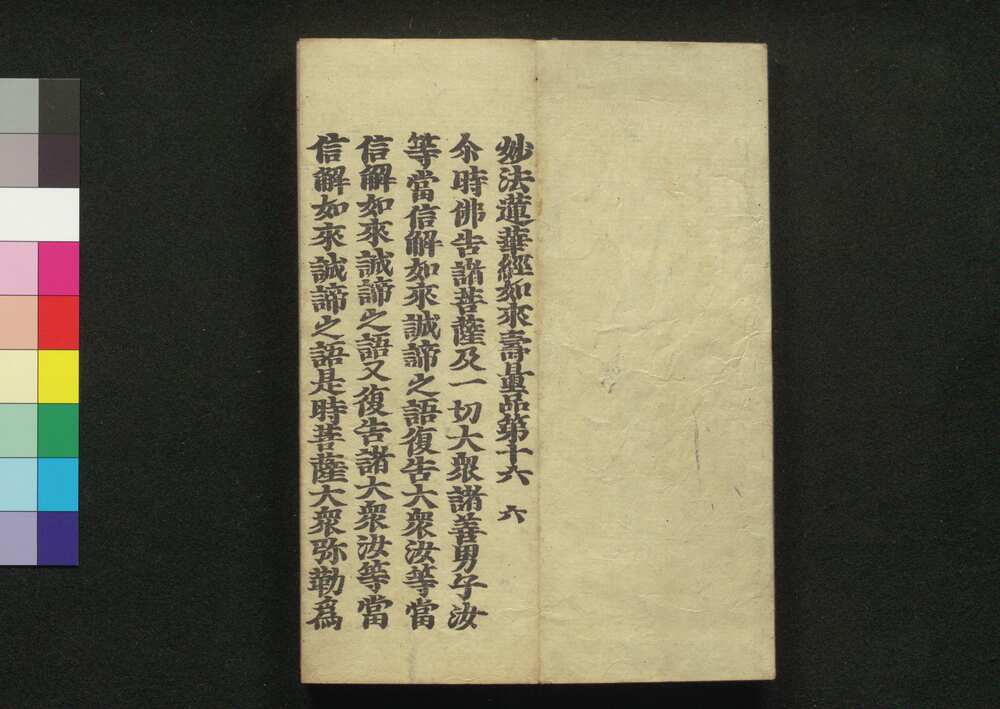 妙法蓮華經如來壽量品第十六 六
尒時佛告諸菩薩及一切大衆諸善男子汝
等當信解如來誠諦之語復告大衆汝等當
信解如來誠諦之語又復告諸大衆汝等當
信解如來誠諦之語是時菩薩大衆弥勒爲